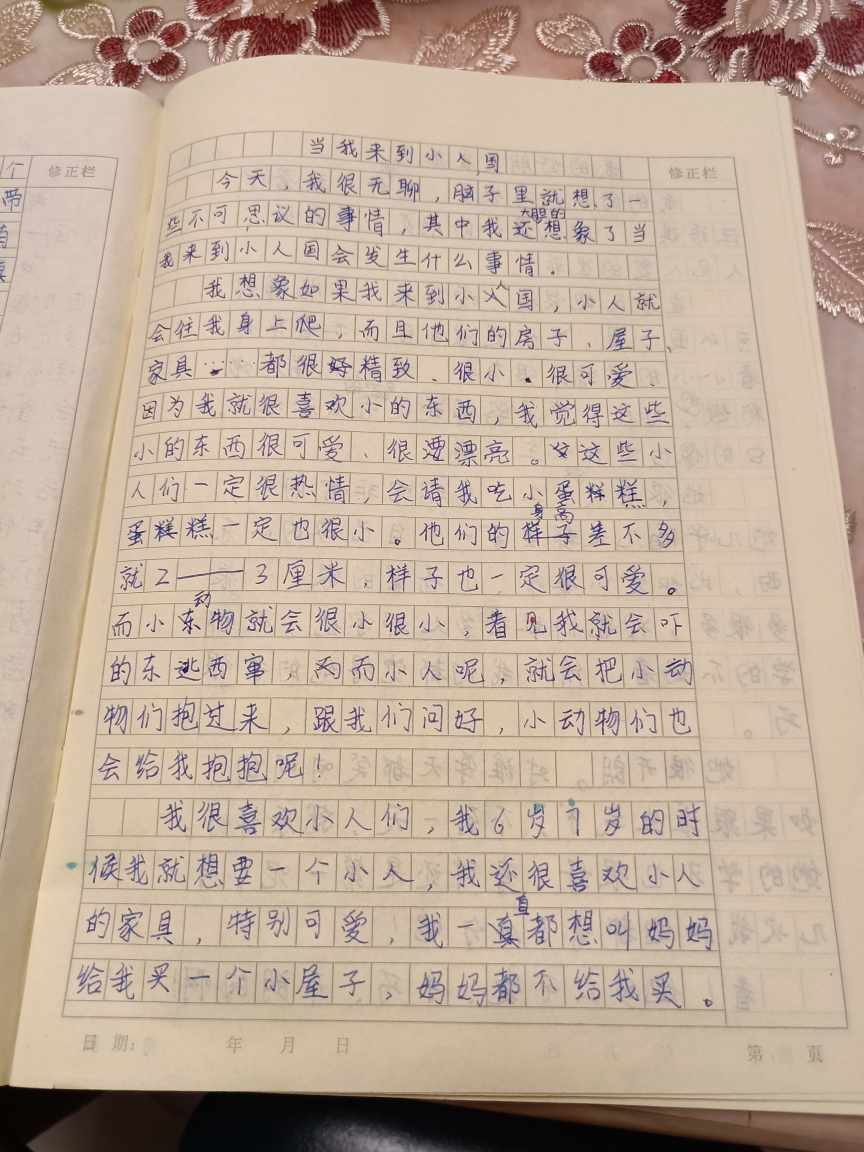 当我来到小人国
今天，我很无聊，脑子里就想了一
些不可思议的事情，其中我还大胆的想象了当
我来到小人国会发生什么事情．
我想象如果我来到小人国，小人就
会往我身上爬，而且他们的房子、屋子、
家具……都很精致、很小、很可爱．
因为我就很喜欢小的东西，我觉得这些
小的东西很可爱、很漂亮。这些小
人们一定很热情，会请我吃小蛋糕，
蛋糕一定也很小。他们的身高差不多
就2——3厘米，样子也一定很可爱。
而小动物就会很小很小，看见我就会吓
的东逃西窜，而小人呢，就会把小动
物们抱过来，跟我们问好，小动物们也
会给我抱抱呢！
我很喜欢小人们，我6岁7岁的时
候我就想要一个小人，我还很喜欢小人
的家具，特别可爱，我一直都想叫妈妈
给我买一个小屋子，妈妈都不给我买。
修正栏
修正栏
个
带
日期：
年
月
日
第
页